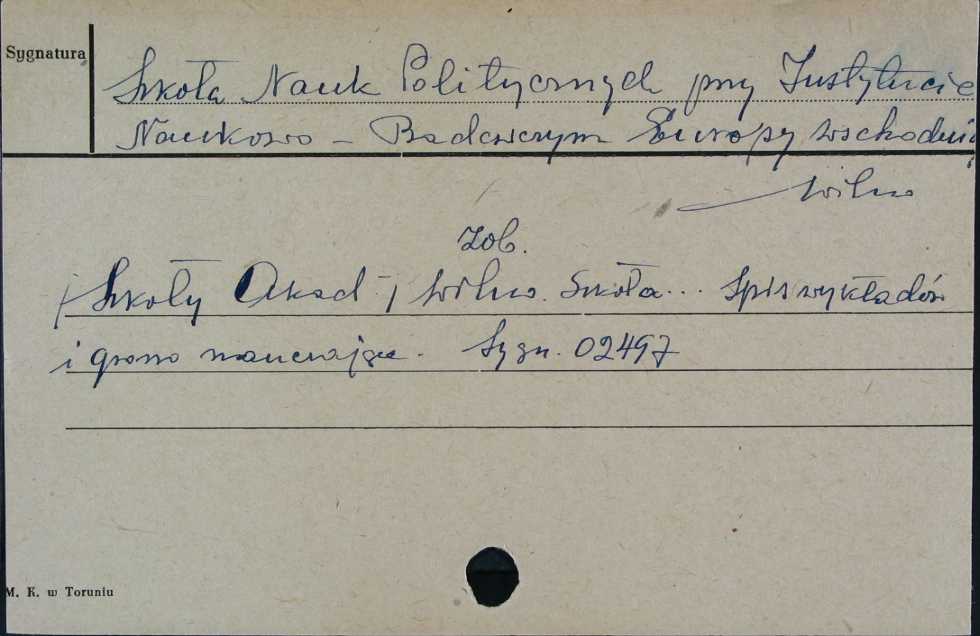 Sygnatura
Szkoła Nauk Politycznych przy Instytucie
Naukowo - Badawczym Europy Wschodni
Wilno
Zob.
/Szkoły Akad./ Wilno. Szkoła... Spis wykładów
i grono nauczające. Sygn. 02497
M. K. w Toruniu